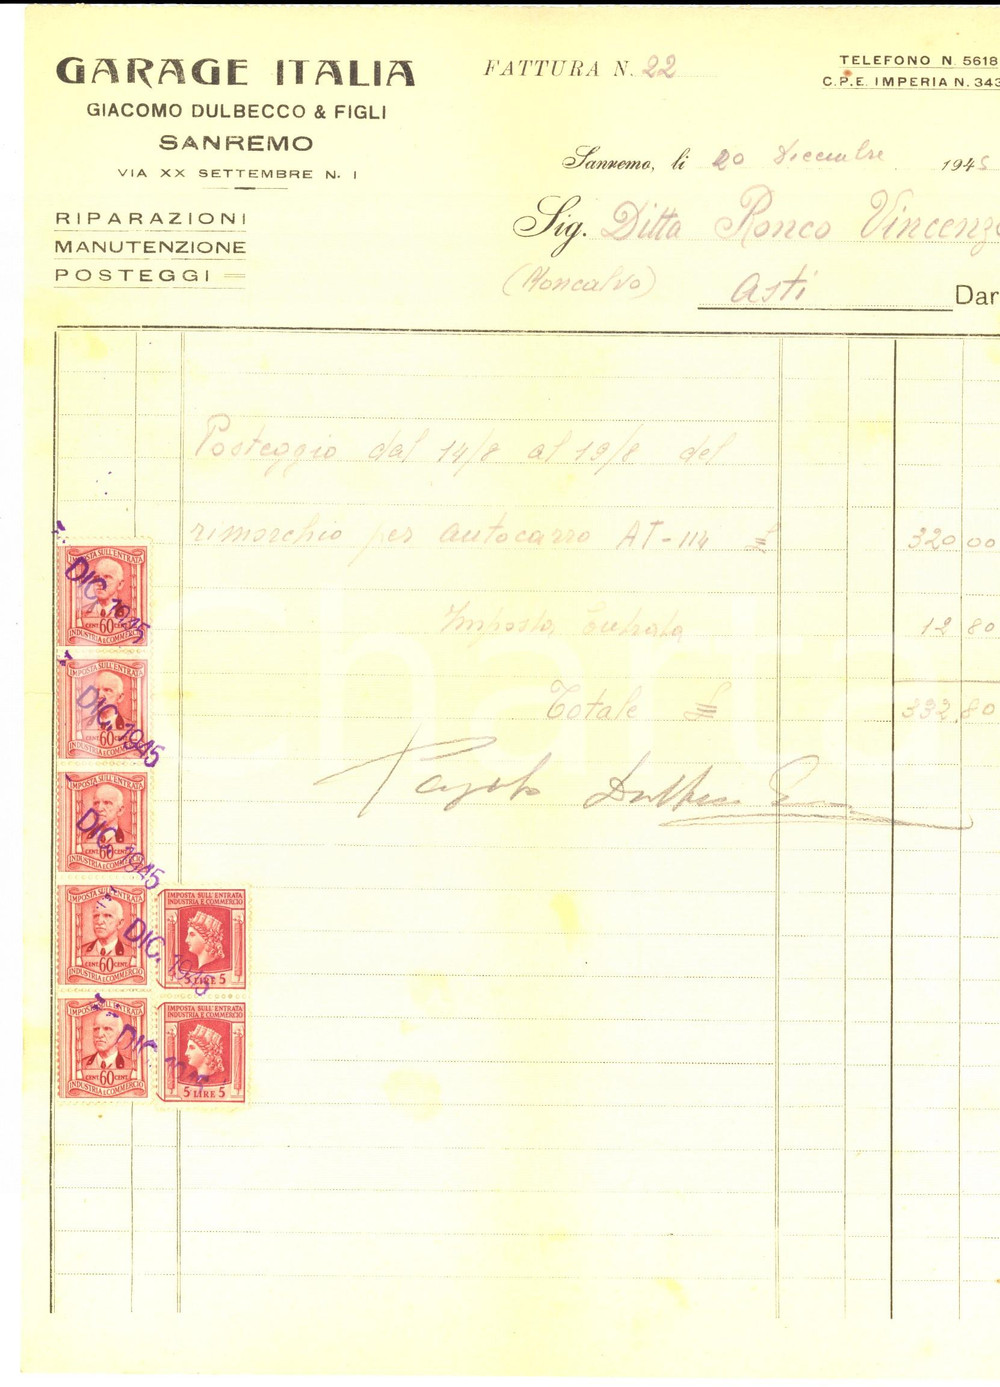 GARAGE ITALIA
GIACOMO DULBECCO & FIGLI
SANREMO
VIA XX SETTEMBRE N. 1
RIPARAZIONI
MANUTENZIONE
POSTEGGI
FATTURA N. 22
TELEFONO N. 5618
C.P.E. IMPERIA N. 343
Sanremo, li 20 Dicembre 1945
Sig. Ditta Ronco Vincenzo
(Moncalvo) Asti
Dar
Posteggio dal 14/8 al 19/8 del
rimorchio per autocarro AT-114 £ 320,00
Imposta Entrata 12 80
Totale £ 332,80
Pagato Dulbecco
IMPOSTA SULL'ENTRATA
CENT 60 CENT
INDUSTRIA E COMMERCIO
DIC. 1945
IMPOSTA SULL'ENTRATA
CENT 60 CENT
INDUSTRIA E COMMERCIO
DIC. 1945
IMPOSTA SULL'ENTRATA
CENT 60 CENT
INDUSTRIA E COMMERCIO
DIC. 1945
IMPOSTA SULL'ENTRATA
CENT 60 CENT
INDUSTRIA E COMMERCIO
DIC. 1945
IMPOSTA SULL'ENTRATA
INDUSTRIA E COMMERCIO
5 LIRE 5
IMPOSTA SULL'ENTRATA
CENT 60 CENT
INDUSTRIA E COMMERCIO
DIC. 1945
IMPOSTA SULL'ENTRATA
INDUSTRIA E COMMERCIO
5 LIRE 5